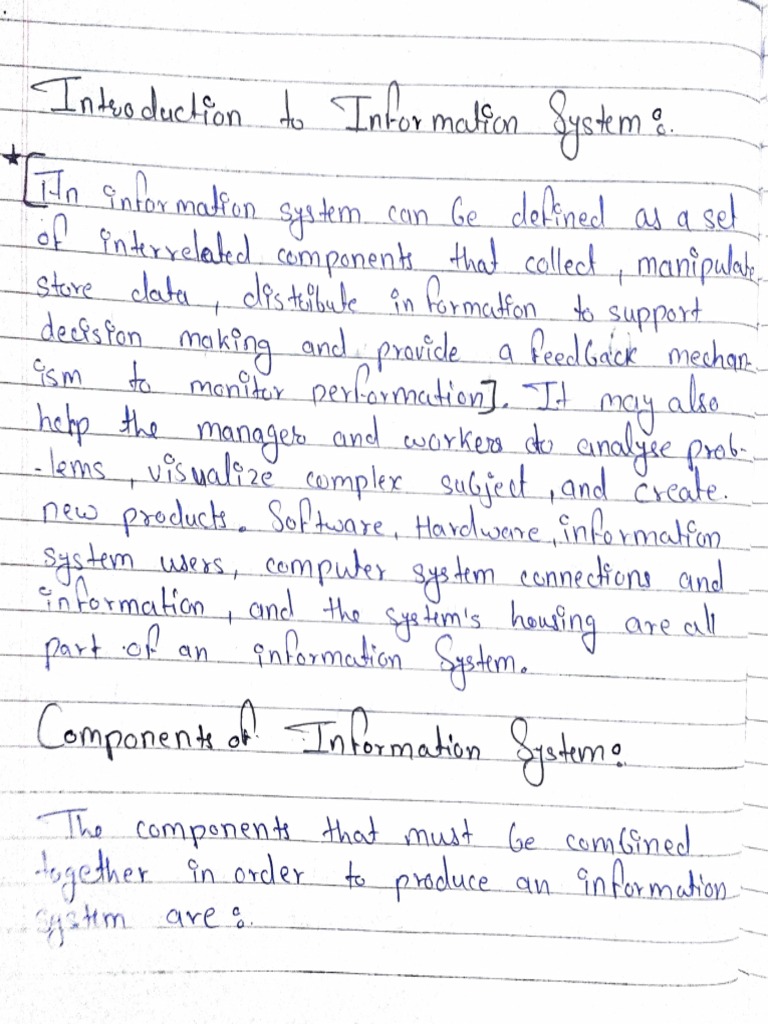 Introduction to Information System:.
★[An information system can be defined as a set
of interrelated components that collect, manipulate
store data, distribute information to support
decision making and provide a feedback mechan-
ism to monitor performation]. It may also
help the manager and workers to analyse prob-
-lems, visualize complex subject, and create.
new products. Software, Hardware, information
system users, computer system connections and
information, and the system's housing are all
part of an information System.
Components of Information System:
The components that must be combined
together in order to produce an information
system are:.